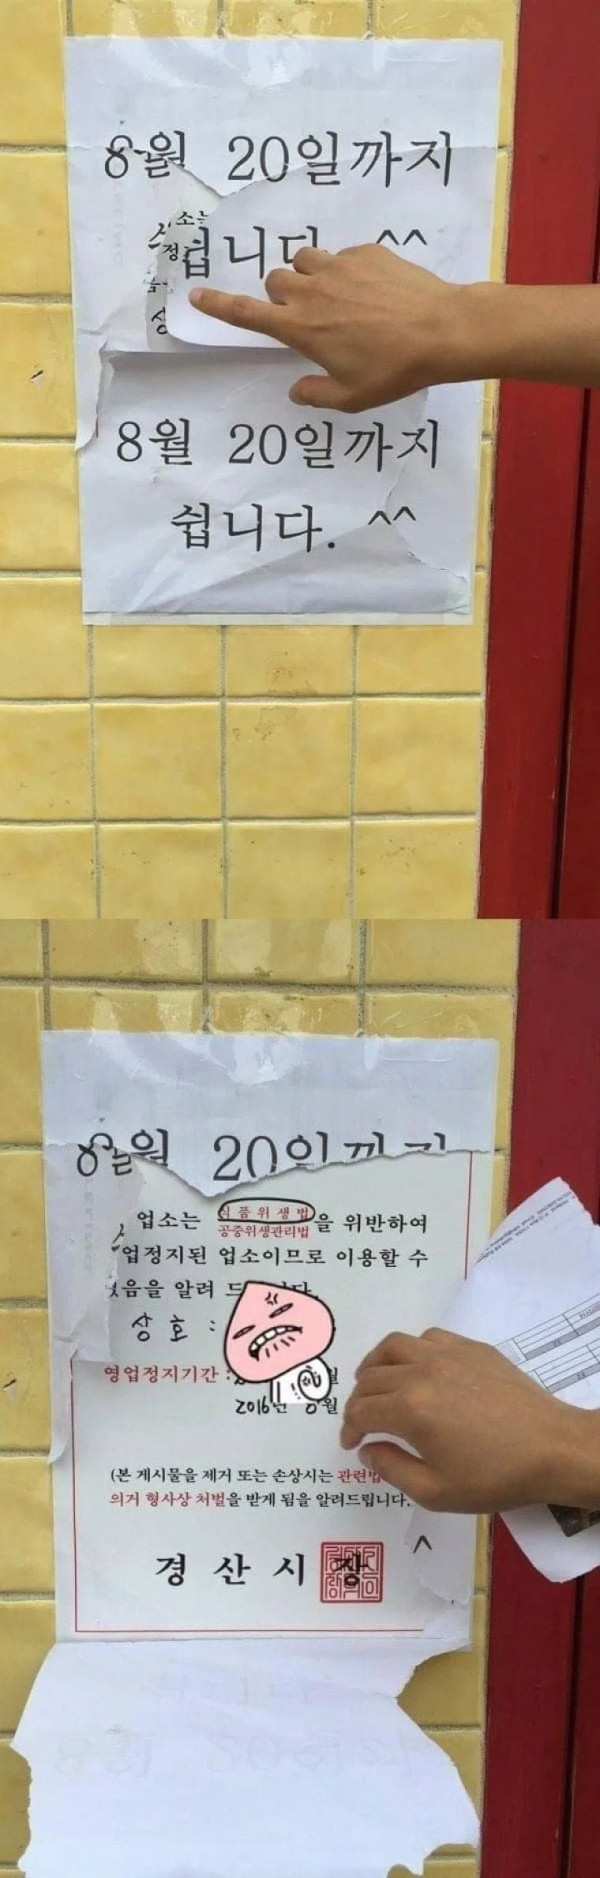 8월 20일까지
쉽니다. ^^
8월 20일까지
쉽니다. ^^
8월 20일까지
업소는 식품위생법
공중위생관리법 을 위반하여
업정지된 업소이므로 이용할 수
음을 알려
상호 :
영업정지기간 :
2016년 월
(본 게시물을 제거 또는 손상시는 관련법
의거 형사상 처벌을 받게 됨을 알려드립니다.
^
경산시장